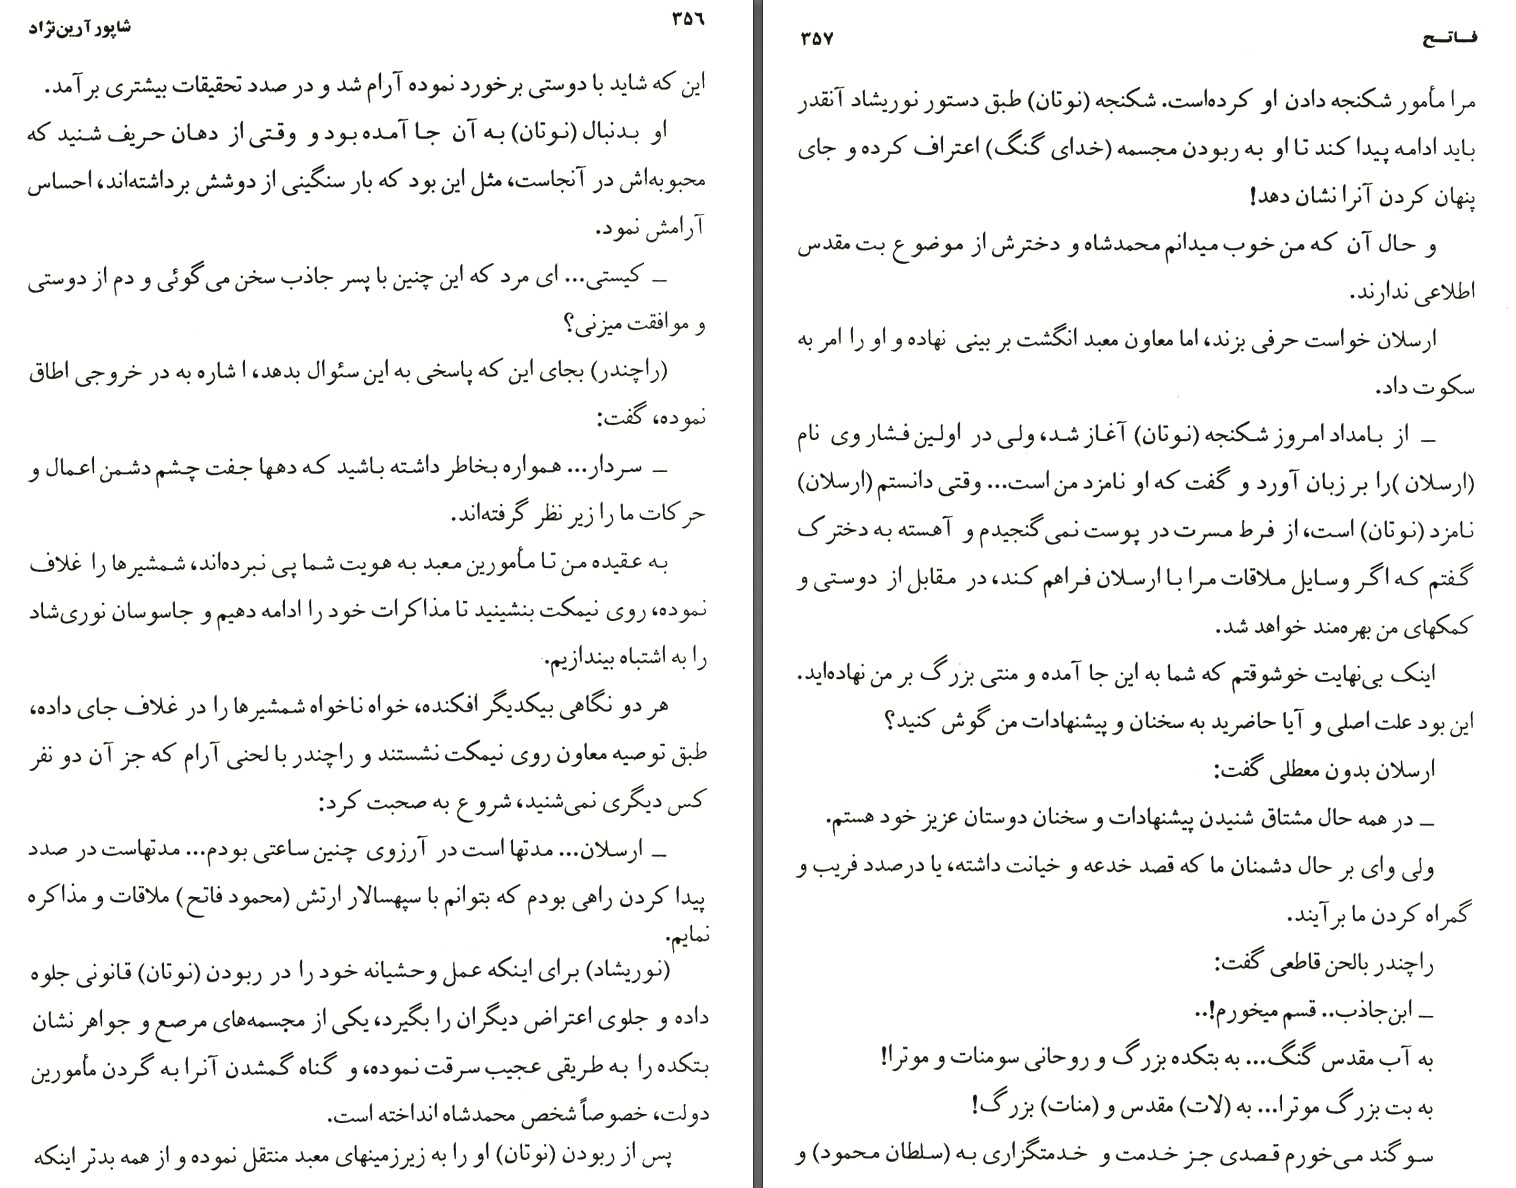 ۳۵۶
شاپور آرین‌نژاد
این که شاید با دوستی برخورد نموده آرام شد و در صدد تحقیقات بیشتری برآمد.
او بدنبال (نوتان) به آن جا آمده بود و وقتی از دهان حریف شنید که
محبوبه‌اش در آنجاست، مثل این بود که بار سنگینی از دوشش برداشته‌اند، احساس
آرامش نمود.
ـ کیستی... ای مرد که این چنین با پسر جاذب سخن می‌گوئی و دم از دوستی
و موافقت میزنی؟
(راچندر) بجای این که پاسخی به این سئوال بدهد، اشاره به در خروجی اطاق
نموده، گفت:
ـ سردار... همواره بخاطر داشته باشید که دهها جفت چشم دشمن اعمال و
حرکات ما را زیر نظر گرفته‌اند.
به عقیده من تا مأمورین معبد به هویت شما پی نبرده‌اند، شمشیرها را غلاف
نموده، روی نیمکت بنشینید تا مذاکرات خود را ادامه دهیم و جاسوسان نوری‌شاد
را به اشتباه بیندازیم.
هر دو نگاهی بیکدیگر افکنده، خواه ناخواه شمشیرها را در غلاف جای داده،
طبق توصیه معاون روی نیمکت نشستند و راچندر با لحنی آرام که جز آن دو نفر
کس دیگری نمی‌شنید، شروع به صحبت کرد:
ـ ارسلان... مدتها است در آرزوی چنین ساعتی بودم... مدتهاست در صدد
پیدا کردن راهی بودم که بتوانم با سپهسالار ارتش (محمود فاتح) ملاقات و مذاکره
نمایم.
(نوریشاد) برای اینکه عمل وحشیانه خود را در ربودن (نوتان) قانونی جلوه
داده و جلوی اعتراض دیگران را بگیرد، یکی از مجسمه‌های مرصع و جواهر نشان
بتکده را به طریقی عجیب سرقت نموده، و گناه گمشدن آنرا به گردن مأمورین
دولت، خصوصاً شخص محمدشاه انداخته است.
پس از ربودن (نوتان) او را به زیرزمینهای معبد منتقل نموده و از همه بدتر اینکه
فـاتـح
۳۵۷
مرا مأمور شکنجه دادن او کرده‌است. شکنجه (نوتان) طبق دستور نوریشاد آنقدر
باید ادامه پیدا کند تا او به ربودن مجسمه (خدای گنگ) اعتراف کرده و جای
پنهان کردن آنرا نشان دهد!
و حال آن که من خوب میدانم محمدشاه و دخترش از موضوع بت مقدس
اطلاعی ندارند.
ارسلان خواست حرفی بزند، اما معاون معبد انگشت بر بینی نهاده و او را امر به
سکوت داد.
ـ از بامداد امروز شکنجه (نوتان) آغاز شد، ولی در اولین فشار وی نام
(ارسلان )را بر زبان آورد و گفت که او نامزد من است... وقتی دانستم (ارسلان)
نامزد (نوتان) است، از فرط مسرت در پوست نمی‌گنجیدم و آهسته به دخترک
گفتم که اگر وسایل ملاقات مرا با ارسلان فراهم کند، در مقابل از دوستی و
کمکهای من بهره‌مند خواهد شد.
اینک بی‌نهایت خوشوقتم که شما به این جا آمده و منتی بزرگ بر من نهاده‌اید.
این بود علت اصلی و آیا حاضرید به سخنان و پیشنهادات من گوش کنید؟
ارسلان بدون معطلی گفت:
ـ در همه حال مشتاق شنیدن پیشنهادات و سخنان دوستان عزیز خود هستم.
ولی وای بر حال دشمنان ما که قصد خدعه و خیانت داشته، یا درصدد فریب و
گمراه کردن ما برآیند.
راچندر بالحن قاطعی گفت:
ـ ابن‌جاذب.. قسم میخورم!..
به آب مقدس گنگ... به بتکده بزرگ و روحانی سومنات و موترا!
به بت بزرگ موترا... به (لات) مقدس و (منات) بزرگ!
سوگند می‌خورم قصدی جز خدمت و خدمتگزاری به (سلطان محمود) و